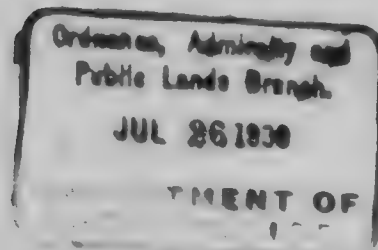 Ordnance, Admiralty and
Public Lands Branch
JUL 26 19
MENT OF